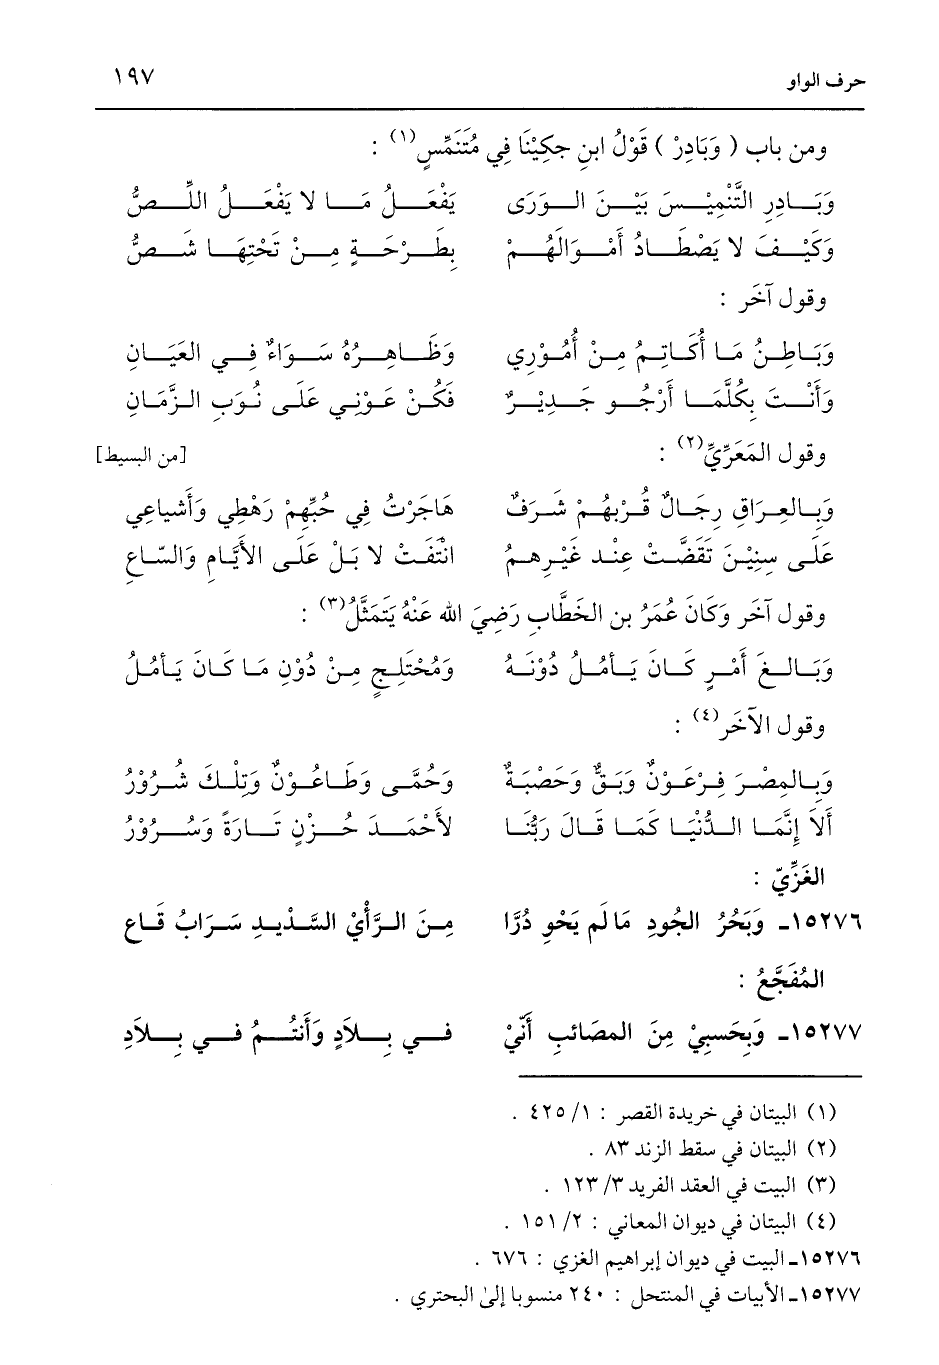 حرف الواو ١٩٧
ومن باب ( وَبَادِرْ ) قَوْلُ ابنِ جكِيْنَا فِي مُتَنَمِّسٍ(١) :
وَبَـادِرِ التَّنْمِيْـسَ بَيْـنَ الـوَرَى يَفْعَـلُ مَـا لا يَفْعَـلُ اللِّـصُّ
وَكَيْـفَ لا يَصْطَـادُ أَمْـوَالَهُـمْ بِطَـرْحَـةٍ مِـنْ تَحْتِهَـا شَـصُّ
وقول آخَر :
وَبَـاطِـنُ مَـا أُكَـاتِـمُ مِـنْ أُمُـوْرِي وَظَـاهِـرُهُ سَـوَاءٌ فِـي العَيَـانِ
وَأَنْـتَ بِكُلَّمَـا أَرْجُـو جَـدِيْـرٌ فَكُـنْ عَـوْنِـي عَلَـى نُـوَبِ الـزَّمَـانِ
وقول المَعَرِّيِّ(٢) : [من البسيط]
وَبِـالعِـرَاقِ رِجَـالٌ قُـرْبُهُـمْ شَـرَفٌ هَاجَرْتُ فِي حُبِّهِمْ رَهْطِي وَأَشياعِي
عَلَـى سِنِيْـنَ تَقَضَّـتْ عِنْـد غَيْـرِهِـمُ انْتَفَـتْ لا بَـلْ عَلَـى الأيَّـامِ وَالسَّـاعِ
وقول آخَر وَكَانَ عُمَرُ بن الخَطَّاب رَضِيَ الله عَنْهُ يَتَمَثَّلُ(٣) :
وَبَـالِـغَ أَمْـرٍ كَـانَ يَـأمُـلُ دُوْنَـهُ وَمُخْتَلِـجٍ مِـنْ دُوْنِ مَـا كَـانَ يَـأمُـلُ
وقول الآخَر(٤) :
وَبِـالمِصْـرِ فِـرْعَـوْنٌ وَبَـقٌّ وَحَصْبَـةٌ وَحُمَّـى وَطَـاعُـوْنٌ وَتِلْـكَ شُـرُوْرُ
ألاَ إِنَّمَـا الـدُّنْيَـا كَمَـا قَـالَ رَبُّنَـا لأَحْمَـدَ حُـزْنٍ تَـارَةً وَسُـرُوْرُ
الغَزِّيّ :
١٥٢٧٦ـ وَبَحْرُ الجُودِ مَا لَم يَحْوِ دُرًّا مِـنَ الـرَّأيْ السَّـدِيـدِ سَـرَابُ قَـاعِ
المُفَجَّعُ :
١٥٢٧٧ـ وَبِحَسبِيْ مِنَ المصَائبِ أَنّيْ فـي بِـلاَدٍ وَأَنتُـمُ فـي بِـلاَدِ
(١) البيتان في خريدة القصر : ١/ ٤٢٥ .
(٢) البيتان في سقط الزند ٨٣ .
(٣) البيت في العقد الفريد ٣/ ١٢٣ .
(٤) البيتان في ديوان المعاني : ٢/ ١٥١ .
١٥٢٧٦ـ البيت في ديوان إبراهيم الغزي : ٦٧٦ .
١٥٢٧٧ـ الأبيات في المنتحل : ٢٤٠ منسوبا إلىٰ البحتري .